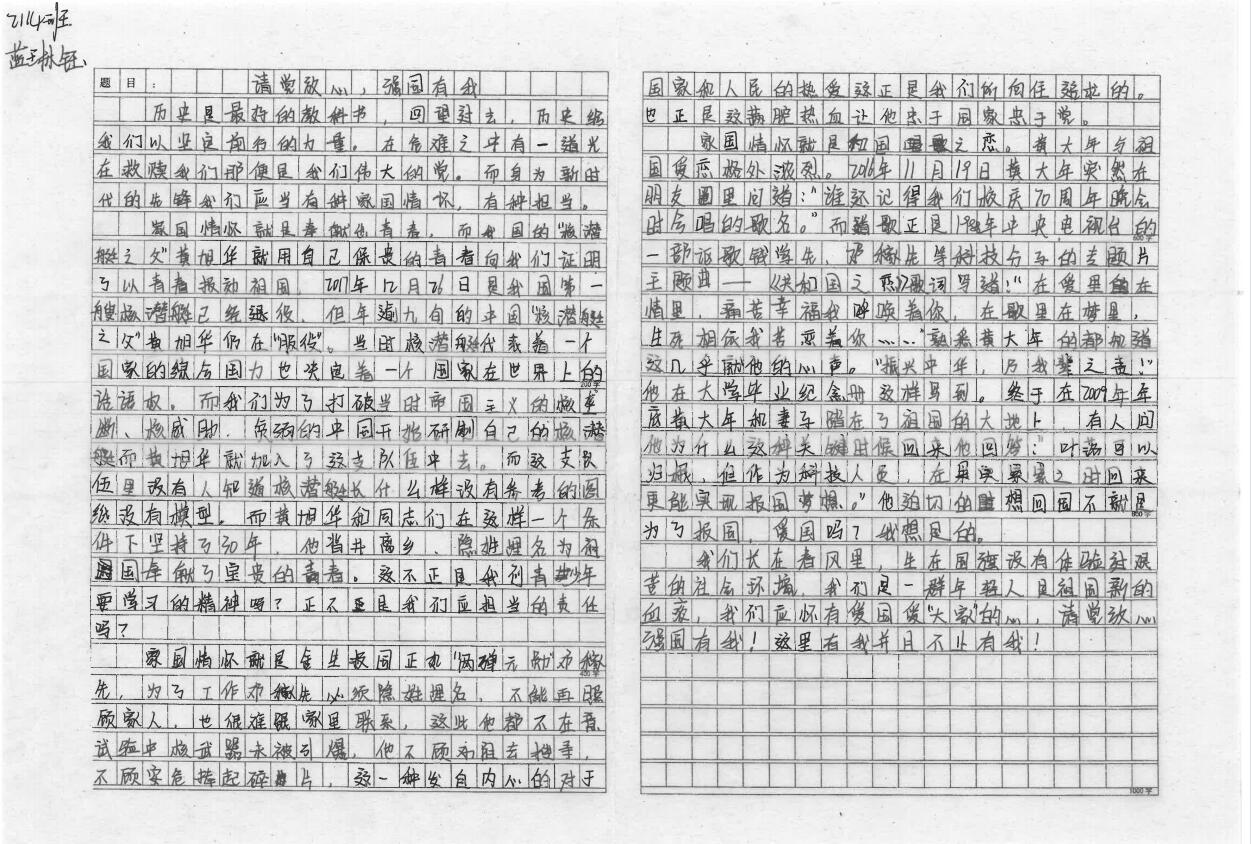 2114班
蓝玉林钰
题目： 请党放心，强国有我
历史是最好的教科书，回望过去，历史给
我们以坚定前行的力量。在危难之中有一道光
在救赎我们那便是我们伟大的党。而身为新时
代的先锋我们应当有种家国情怀，有种担当。
家国情怀就是奉献出青春，而我国的“核潜
艇之父”黄旭华就用自己保贵的青春向我们证明
了以青春报效祖国。2017年12月26日是我国第一
艘核潜艇已经退役，但年逾九旬的中国“核潜艇
之父”黄旭华仍在“服役”。当时核潜艇代表着一个
国家的综合国力也决定着一个国家在世界上的
200字
话语权。而我们为了打破当时帝国主义的核垄
断、核威胁，贫弱的中国开始研制自己的核潜
艇而黄旭华就加入了这支队伍中去。而这支队
伍里没有人知道核潜艇长什么样没有参考的图
纸没有模型。而黄旭华和同志们在这样一个条
件下坚持了30年，他背井离乡、隐姓埋名为祖
国奉献了宝贵的青春。这不正是我们青少年
要学习的精神吗？正不正是我们应担当的责任
吗？
家国情怀就是舍生报国正如“两弹元勋”邓稼
400字
先，为了工作邓稼先必须隐姓埋名，不能再照
顾家人，也很难跟家里联系，这些他都不在意
试验中核武器未被引爆，他不顾劝阻去搜寻，
不顾安危捧起碎片，这一种发自内心的对于
国家和人民的热爱这正是我们所向往 强求的。
也正是这满腔热血让他忠于国家忠于党。
家国情怀就是和国 之恋。黄大年与祖
国爱恋格外浓烈。2016年11月19日黄大年突然在
朋友圈里问道：“谁还记得我们校庆70周年晚会
时合唱的歌名。”而 歌正是1988年中央电视台的
600字
一部讴歌钱学生、邓稼先等科技分子的专题片
主题曲——《共和国之恋》歌词写道：“在爱里 在
情里，痛苦幸福我呼唤着你，在歌里在梦里，
生死相依我苦恋着你……”熟悉黄大年的都知道
这几乎就他的心声。“振兴中华，乃我辈之责！”
他在大学毕业纪念册这样写到。终于在2009年年
底黄大年和妻子踏在了祖国的大地上，有人问
他为什么这种关键时候回来他回答：“叶落可以
归根，但作为科技人员，在果实累累之时回来
更能实现报国梦想。”他迫切的 想回国不就是
800字
为了报国，爱国吗？我想是的。
我们长在春风里，生在国强没有体验过艰
苦的社会环境，我们是一群年轻人是祖国新的
血液，我们应怀有爱国爱“大家”的心，请党放心
强国有我！这里有我并且不止有我！
1000字